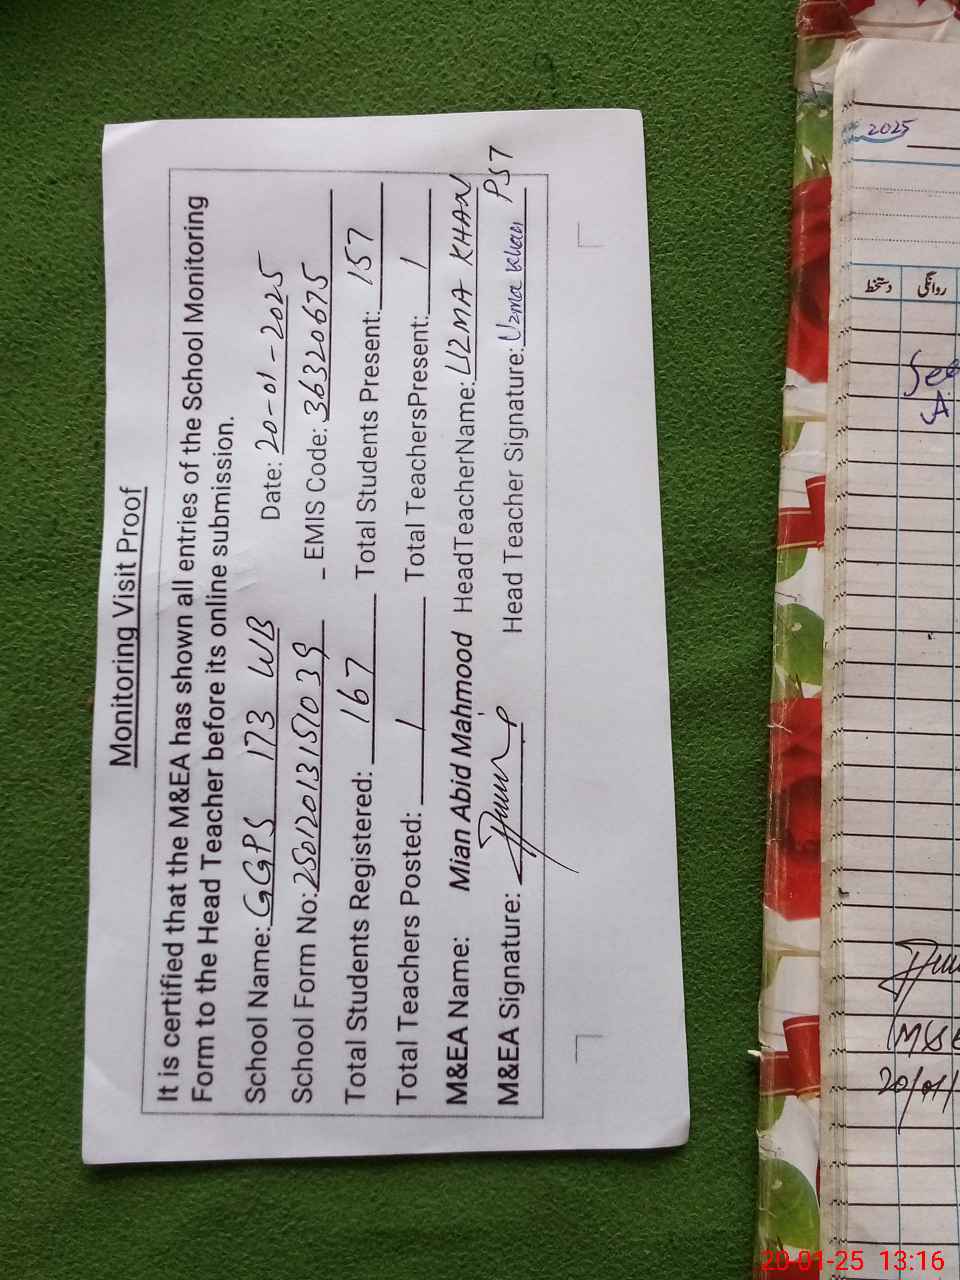 Monitoring Visit Proof
It is certified that the M&EA has shown all entries of the School Monitoring
Form to the Head Teacher before its online submission.
School Name: GGPS 173 WB Date: 20-01-2025
School Form No: 25012013151039 EMIS Code: 36320675
Total Students Registered: 167 Total Students Present: 157
Total Teachers Posted: 1 Total TeachersPresent: 1
M&EA Name: Mian Abid Mahmood HeadTeacherName: UZMA KHAN
M&EA Signature: Head Teacher Signature: Uzma Khan PST
2025
دستخط روانگی
See
A
20/01/
20-01-25 13:16